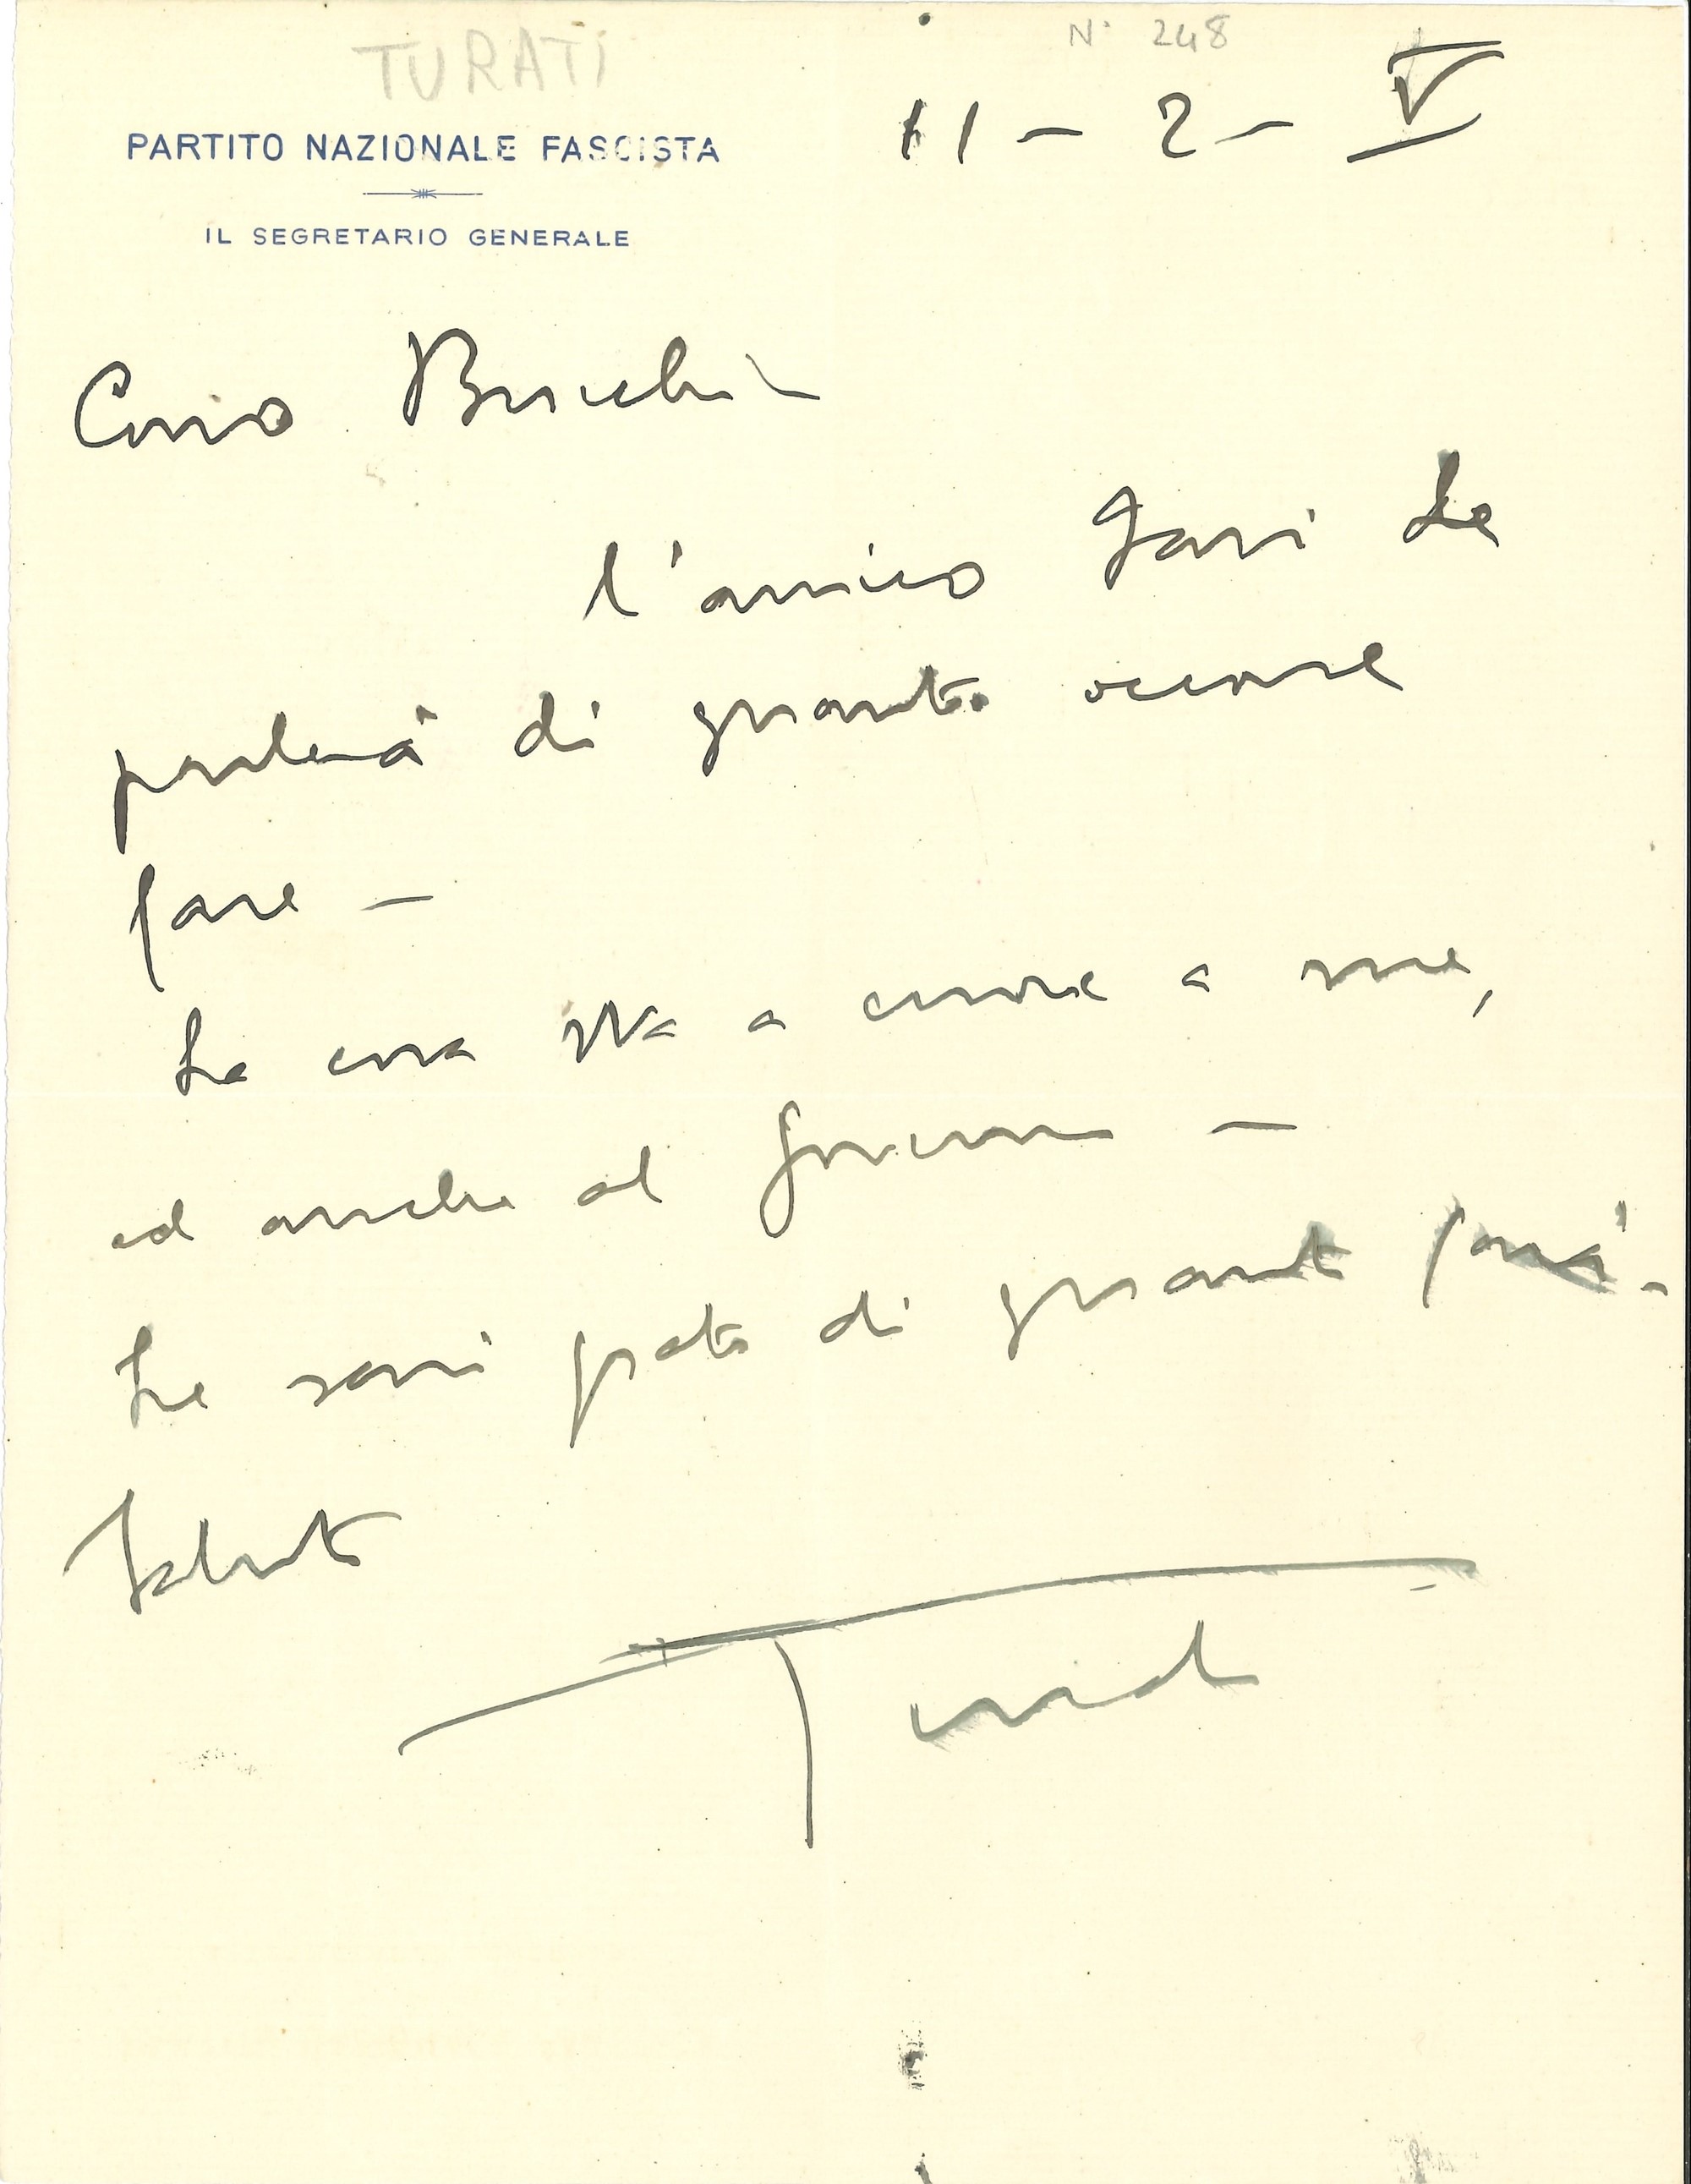 TURATI
N° 248
PARTITO NAZIONALE FASCISTA
IL SEGRETARIO GENERALE
11 - 2 - V
Caro
l'amico Le
parlerà di quanto occorre
fare -
La cosa sta a cuore a me,
ed anche al Governo -
Le sarò grato di quanto farà -
Saluti
Turati